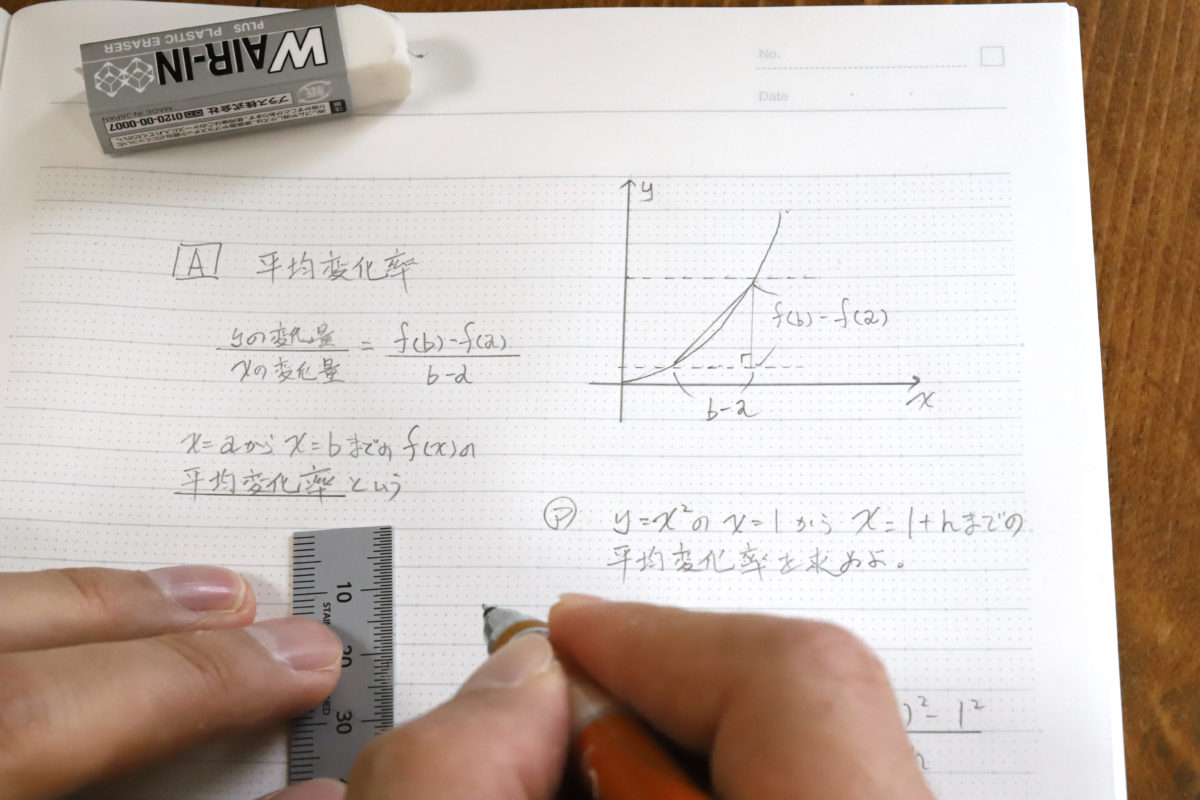 WAIR-IN
PLUS PLASTIC ERASER
MADE IN JAPAN
プラス株式会社 0120-00-0007
No.
Date
y
A 平均変化率
yの変化量
xの変化量
=
f(b)-f(a)
b-a
f(b)-f(a)
b-a
x
x=aから x=bまでの f(x)の
平均変化率という
P y=x²の x=1から x=1+hまでの
平均変化率を求めよ。
10
20
30
)²-1²